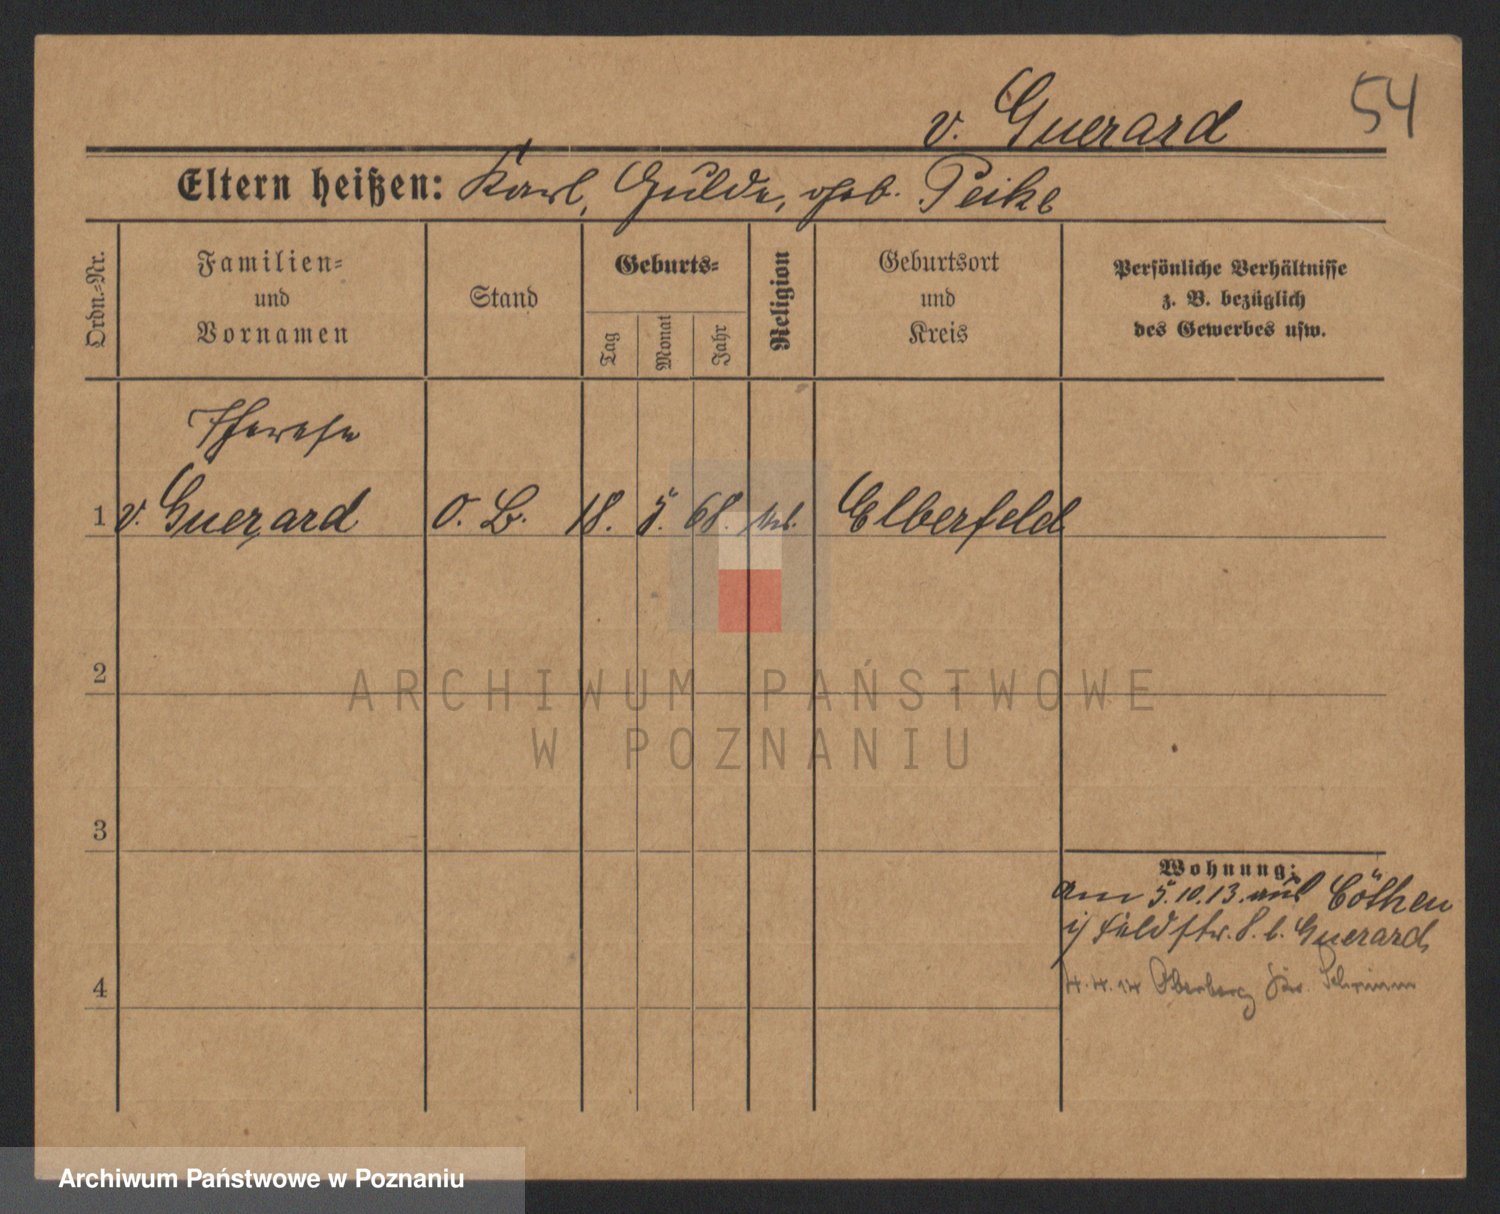 v. Guerard
54
Eltern heißen: Karl, Hulda, geb. Peike
Ordn.-Nr.
Familien-
und
Vornamen
Stand
Geburts-
Tag
Monat
Jahr
Religion
Geburtsort
und
Kreis
Persönliche Verhältnisse
z. B. bezüglich
des Gewerbes usw.
Therese
1 v. Guerard O. B. 18. 5. 68. Elberfeld
2
3
4
Wohnung:
am 5.10.13. aus Cöthen
Feldstr. 8. b. Guerard
Oberberg Kr. Schrimm
ARCHIWUM PAŃSTWOWE
W POZNANIU
Archiwum Państwowe w Poznaniu